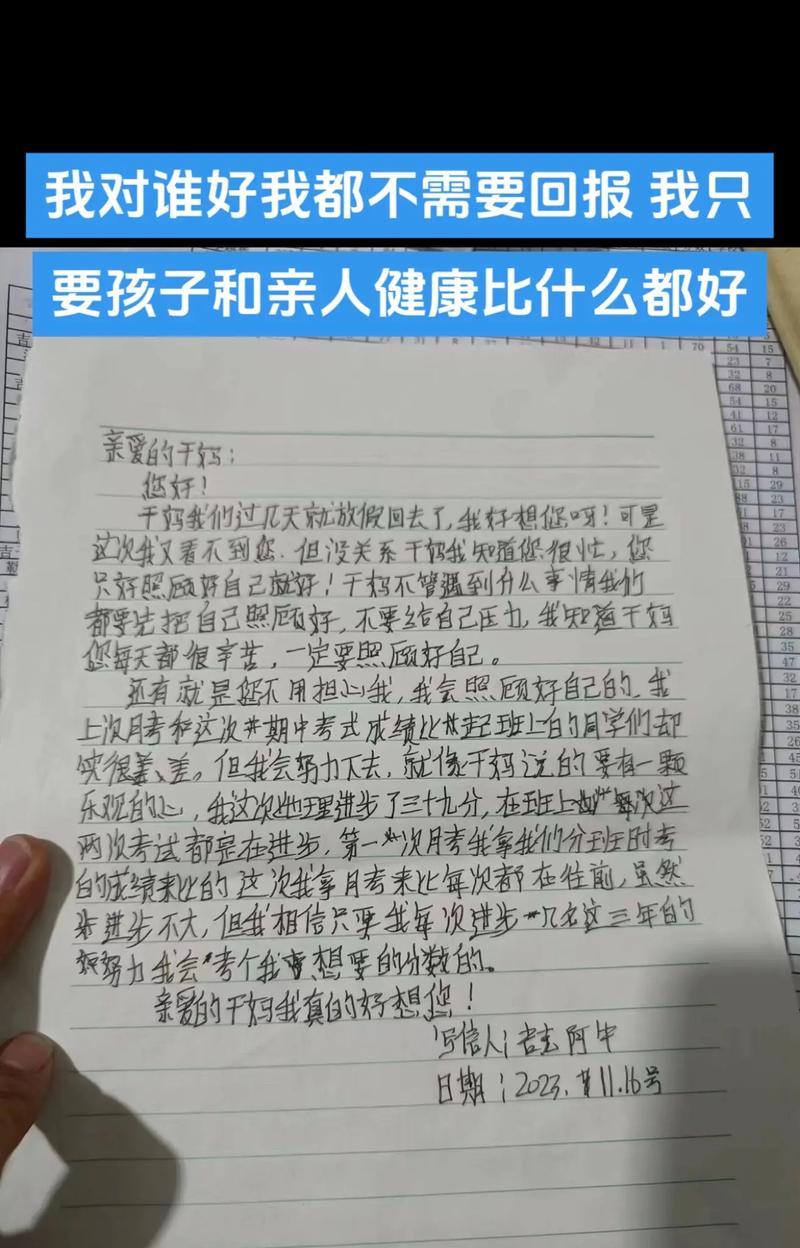 我对谁好我都不需要回报 我只
要孩子和亲人健康比什么都好
亲爱的干妈：
您好！
干妈我们过几天就放假回去了，我好想您呀！可是
这次我又看不到您．但没关系干妈我知道您很忙，您
只好照顾好自己就好！干妈不管遇到什么事情我们
都要先把自己照顾好，不要给自己压力，我知道干妈
您每天都很辛苦，一定要照顾好自己。
还有就是您不用担心我，我会照顾好自己的．我
上次月考和这次期中考式成绩比起班上的同学们却
很差、差。但我会努力下去，就像干妈说的要有一颗
乐观的心，我这次地理进步了三十九分，在班上每次这
两次考试都是在进步，第一次月考我拿我们分班时考
的成绩来比的这次我拿月考来比每次都在往前，虽然
进步不大，但我相信只要我每次进步几名这三年的
努力我会考个我想要的分数的。
亲爱的干妈我真的好想您！
写信人：吉 阿牛
日期：2023.11.16号
70 54 15